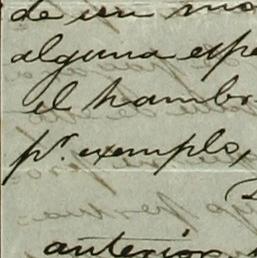 de un mo
alguna espe
el hambr
pr. exemplo,
anterior,